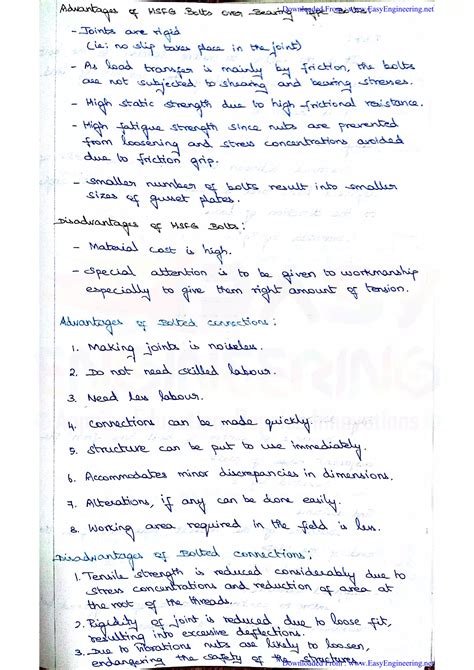 Advantages of HSFG Bolts over Bearing Type Bolts:
Downloaded From : www.EasyEngineering.net
- Joints are rigid
(ie: no slip takes place in the joint)
- As load transfer is mainly by friction, the bolts
are not subjected to shearing and bearing stresses.
- High static strength due to high frictional resistance.
- High fatigue strength since nuts are prevented
from loosening and stress concentrations avoided
due to friction grip.
- Smaller number of bolts result into smaller
sizes of gusset plates.
Disadvantages of HSFG Bolts:
- Material cost is high.
- Special attention is to be given to workmanship
especially to give them right amount of tension.
Advantages of Bolted connections:
1. Making joints is noiseless.
2. Do not need skilled labour.
3. Need less labour.
4. Connections can be made quickly.
5. Structure can be put to use immediately.
6. Accommodates minor discrepancies in dimensions.
7. Alterations, if any can be done easily.
8. Working area required in the field is less.
Disadvantages of Bolted connections:
1. Tensile strength is reduced considerably due to
stress concentrations and reduction of area at
the root of the threads.
2. Rigidity of joint is reduced due to loose fit,
resulting into excessive deflections.
3. Due to vibrations nuts are likely to loosen,
endangering the safety of the structures.
Downloaded From : www.EasyEngineering.net